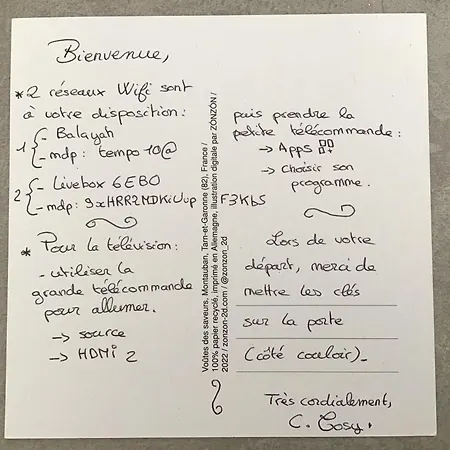 Bienvenue,
* 2 réseaux Wifi sont
à votre disposition :
1 { - Balayah
- mdp : tempo10@
2 { - Livebox 6EB0
- mdp : 9xHRR2MDKiUup F3KbS
* Pour la télévision :
- utiliser la
grande télécommande
pour allumer.
→ source
→ HDMi 2
Voûtes des saveurs, Montauban, Tarn-et-Garonne (82), France /
100% papier recyclé, imprimé en Allemagne, illustration digitale par ZONZÓN /
2022 / zonzon-2d.com / @zonzon_2d
puis prendre la
petite télécommande :
→ Apps
→ Choisir son
programme.
Lors de votre
départ, merci de
mettre les clés
sur la porte
(côté couloir)_
Très cordialement,
C. Cosy.